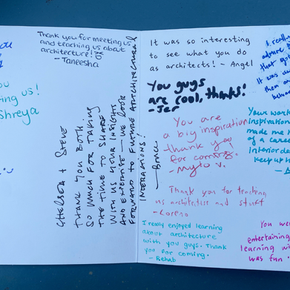 ing us!
Shreya
Thank you for meeting us
and teaching us about
architecture!
-Taneesha
CHELSEA + STEVE
THANK YOU BOTH
SO MUCH FOR TAKING
THE TIME TO SHARE
WITH US YOUR INSIGHT
AND EXPERTISE - WE LOOK
FORWARD TO FUTURE ARCHITECTURAL
INTERACTIONS!
It was so interesting
to see what you do
as architects! - Angel
You guys
are cool, thanks!
You are
a big inspiration
thank you
for coming.
Thank you for teaching
us architecture and stuff
I really enjoyed learning
about architecture
with you guys. Thank
you for coming.
I really
Your work
inspiration
made me
of a career
interior de
keep up
You we
entertaining
learning wh
was fun